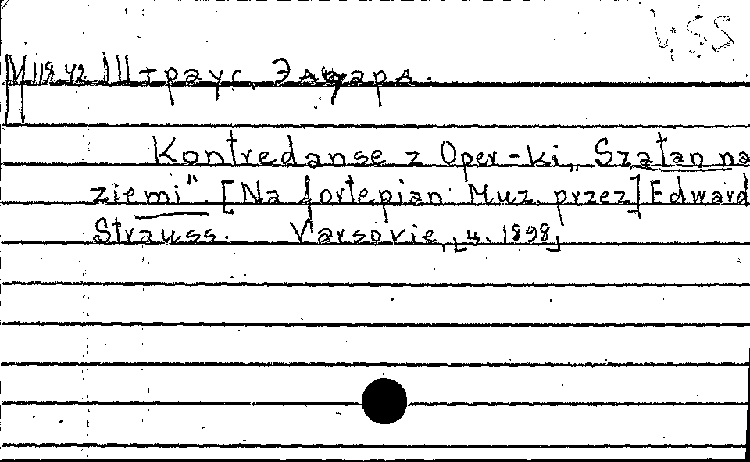 455
М 118 42 Штраус, Эдуард.
Kontredanse z Oper-ki „Szatan na
ziemi". [Na fortepian. Muz. przez] Edward
Strauss. Varsovie, [ц. 1898]